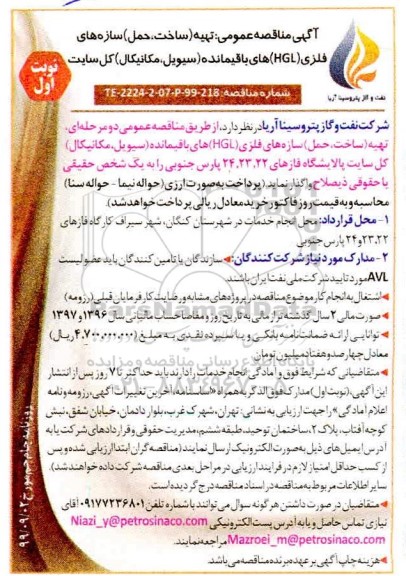 آگهی مناقصه عمومی: تهیه (ساخت، حمل) سازه های
فلزی (HGL) های باقیمانده (سیویل، مکانیکال) کل سایت
نوبت اول
شماره مناقصه: TE-2224-2-07-P-99-218
نفت و گاز پتروسینا آریا
شرکت نفت و گاز پتروسینا آریا در نظر دارد، از طریق مناقصه عمومی دو مرحله ای،
تهیه (ساخت، حمل) سازه های فلزی (HGL) های باقیمانده (سیویل، مکانیکال)
کل سایت پالایشگاه فازهای ۲۴،۲۳،۲۲ پارس جنوبی را به یک شخص حقیقی
یا حقوقی ذیصلاح واگذار نماید. (پرداخت به صورت ارزی (حواله نیما - حواله سنا)
محاسبه و به قیمت روز فاکتور خرید معادل ریالی پرداخت خواهد شد).
۱- محل قرارداد: محل انجام خدمات در شهرستان کنگان، شهر سیراف کارگاه فازهای
۲۳،۲۲ و ۲۴ پارس جنوبی
۲- مدارک مورد نیاز شرکت کنندگان: سازندگان یا تامین کنندگان باید عضو لیست
AVL مورد تایید شرکت ملی نفت ایران باشند.
اشتغال به انجام کار موضوع مناقصه در پروژه های مشابه و رضایت کارفرمایان قبلی (رزومه)
صورت مالی ۲ سال گذشته تراز مالی به تاریخ روز و مفاصا حساب مالیاتی سال ۱۳۹۶ و ۱۳۹۷
توانایی ارائه ضمانتنامه بانکی و یا سپرده نقدی به مبلغ (۴.۷۰۰.۰۰۰.۰۰۰ ریال)
معادل چهارصد و هفتاد میلیون تومان
متقاضیانی که شرایط فوق و آمادگی انجام خدمات را دارند باید حداکثر تا ۷ روز پس از انتشار
این آگهی، (نوبت اول) مدارک فوق الذکر به همراه «اساسنامه، آخرین تغییرات آگهی، رزومه و نامه
اعلام آمادگی» را جهت ارزیابی به نشانی: تهران، شهرک غرب، بلوار دادمان، خیابان شفق، نبش
کوچه آفتاب، پلاک ۲، ساختمان توحید، طبقه ششم، مدیریت حقوقی و قراردادهای شرکت یا به
آدرس ایمیل های ذیل به صورت الکترونیک ارسال نمایند (مناقصه گران ابتدا ارزیابی شده و پس
از کسب حداقل امتیاز لازم در فرایند ارزیابی در مراحل بعدی مناقصه شرکت داده خواهند شد).
سایر اطلاعات مربوط به مناقصه در اسناد مناقصه درج گردیده است.
متقاضیان در صورت داشتن هر گونه سوال می توانند با شماره تلفن ۰۹۱۷۷۲۳۶۸۰۱ آقای
نیازی تماس حاصل و یا به آدرس پست الکترونیکی Niazi_y@petrosinaco.com
Mazroei_m@petrosinaco.com مراجعه نمایند.
هزینه چاپ آگهی بر عهده برنده مناقصه می باشد.
روزنامه جام جم مورخ ۹۹/۰۹/۰۲
پایگاه اطلاع رسانی مناقصه و مزایده